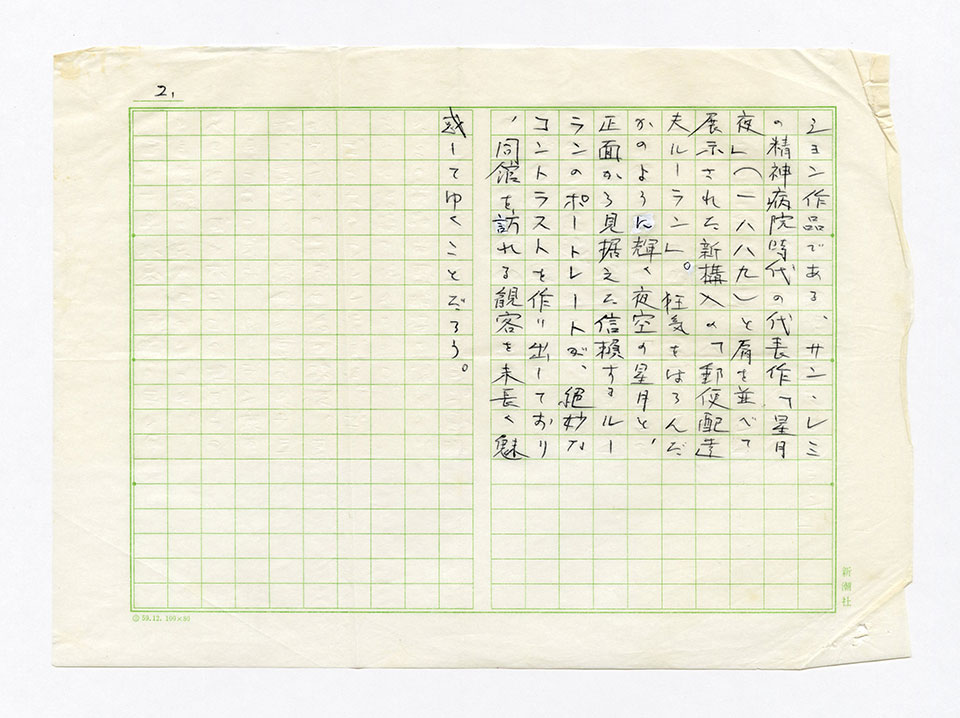 2,
ション作品である、サン・レミ
の精神病院時代の代表作「星月
夜」（一八八九）と肩を並べて
展示された新購入の「郵便配達
夫ルーラン」。狂気をはらんだ
かのように輝く夜空の星月と、
正面から見据えた信頼するルー
ランのポートレートが、絶妙な
コントラストを作り出しており
、同館を訪れる観客を末長く魅
惑してゆくことだろう。
新潮社
59.12. 100×80